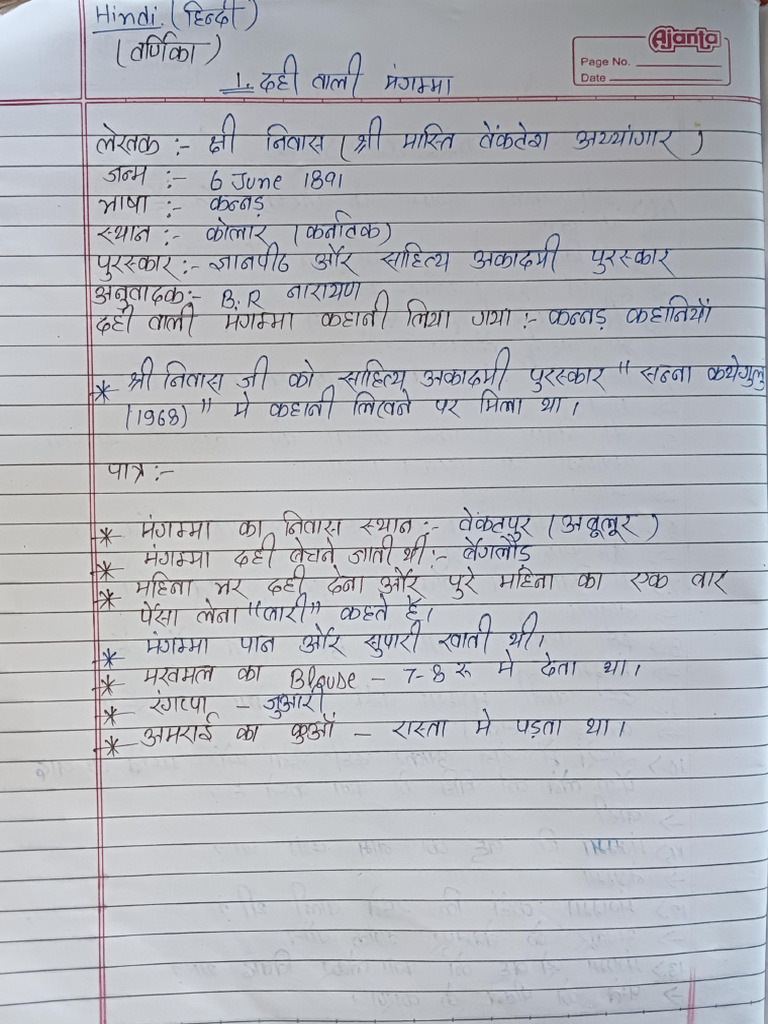 Hindi (हिन्दी)
(वर्णिका)
Ajanta
Page No.
Date
1. दही वाली मंगम्मा
लेखक :- श्री निवास (श्री मास्ति वेंकटेश अय्यांगार)
जन्म :- 6 June 1891
भाषा :- कन्नड़
स्थान :- कोलार (कर्नाटिक)
पुरस्कार :- ज्ञानपीठ और साहित्य अकादमी पुरस्कार
अनुवादक :- B.R नारायण
दही वाली मंगम्मा कहानी लिया गया :- कन्नड़ कहानियाँ
* श्री निवास जी को साहित्य अकादमी पुरस्कार "सन्ना कथेगुलु
(1968)" मे कहानी लिखने पर मिला था।
पात्र :-
* मंगम्मा का निवास स्थान :- वेंकटपुर (अवूलूर)
* मंगम्मा दही बेचने जाती थी :- बेंगलौड़
* महिना भर दही देना और पुरे महिना का एक वार
पैसा लेना "वारी" कहते हैं।
* मंगम्मा पान और सुपारी खाती थी।
* मखमल का Blouse - 7-8 रू मे देता था।
* रंगप्पा - जुआरी
* अमराई का कुआँ - रास्ता मे पड़ता था।